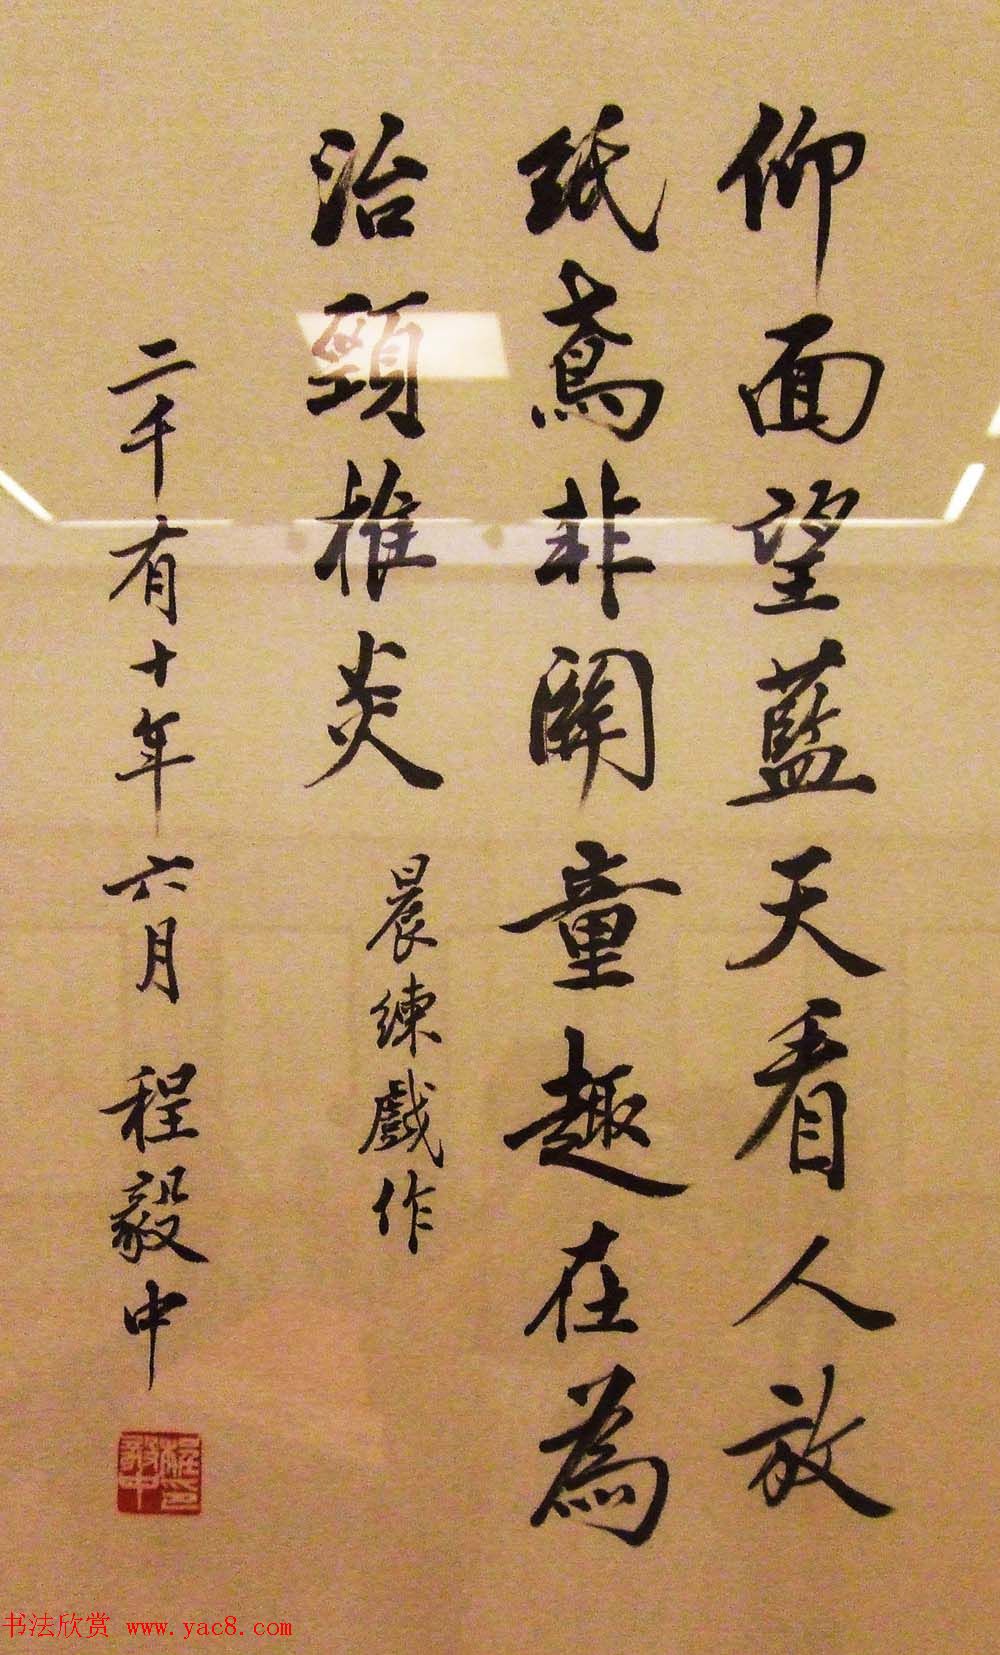 仰面望藍天看人放
紙鳶非關童趣在為
治頸椎炎
晨練戲作
二千有十年六月 程毅中
程毅中印
书法欣赏 www.yac8.com